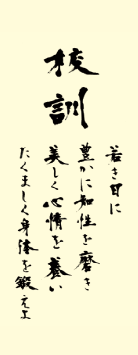 校訓
若き日に
豊かに知性を磨き
美しく心情を養い
たくましく身体を鍛えよ